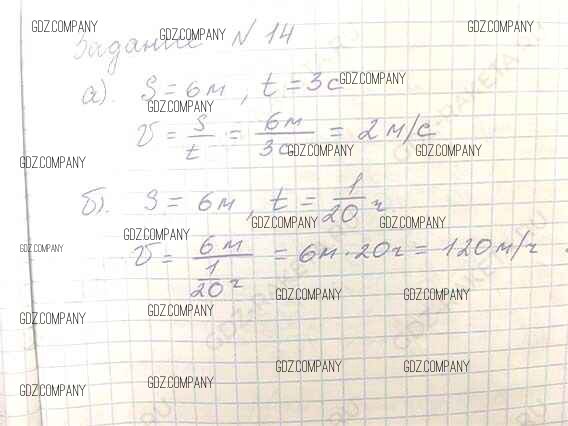 GDZ.COMPANY GDZ.COMPANY GDZ.COMPANY
Задание N 14
а). S = 6м, t = 3с GDZ.COMPANY
GDZ.COMPANY
v = S/t = 6м/3с = 2 м/с
GDZ.COMPANY GDZ.COMPANY GDZ.COMPANY
б). S = 6м, t = 1/20 ч
GDZ.COMPANY GDZ.COMPANY GDZ.COMPANY
v = 6м/(1/20 ч) = 6м · 20ч = 120 м/ч.
GDZ.COMPANY
GDZ.COMPANY GDZ.COMPANY
GDZ.COMPANY GDZ.COMPANY
GDZ.COMPANY GDZ.COMPANY
GDZ.COMPANY GDZ.COMPANY